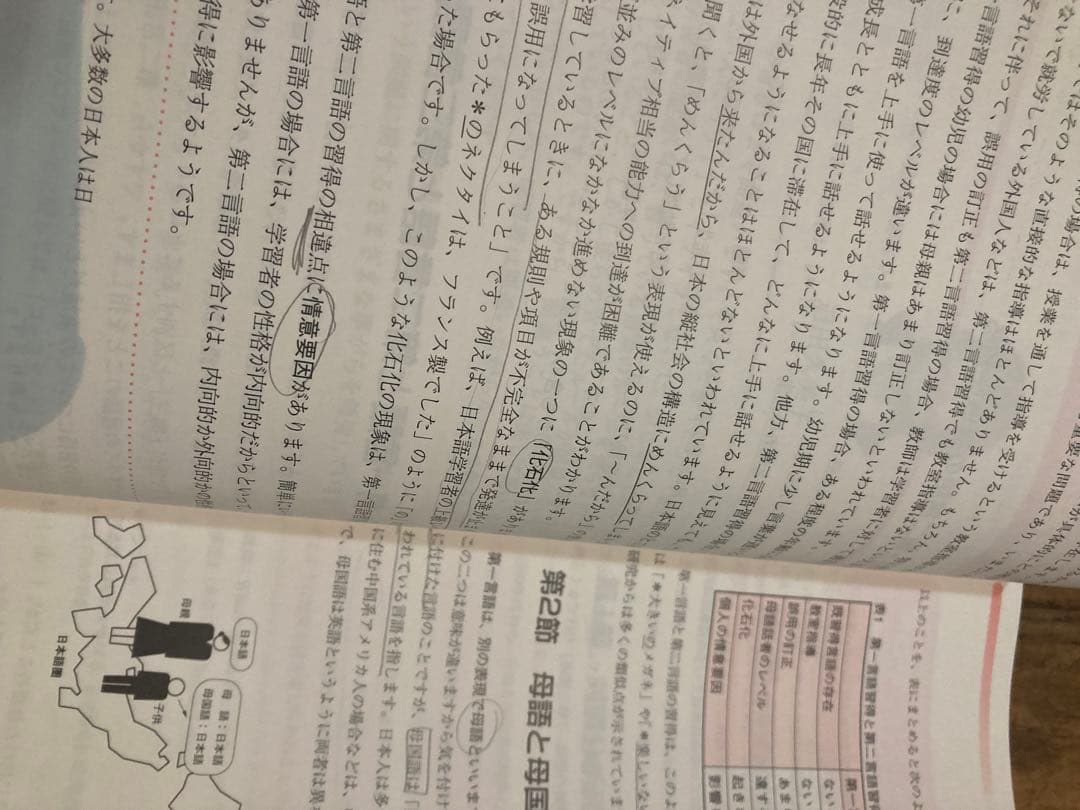 の場合は、授業を通して指導を受けるという
ではそのような直接的な指導はほとんどありません。もちろん、
ないで就労している外国人などは、第二言語習得でも教室指導はない
それに伴って、誤用の訂正も第二言語習得の場合、教師は学習者に対して
言語習得の幼児の場合には母親はあまり訂正しないといわれています。
に、到達度のレベルが違います。第一言語習得の場合、ある程度の
第一言語を上手に使って話せるようになります。幼児期に少し言葉が
成長とともに上手に話せるようになります。他方、第二言語習得の
般的に長年その国に滞在して、どんなに上手に話せるように見えても
なせるようになることはほとんどないといわれています。日本語の
は外国から来たんだから、日本の縦社会の構造にめんくらって
聞くと、「めんくらう」という表現が使えるのに、「～んだから」の
ネイティブ相当の能力への到達が困難であることがわかります。
並みのレベルになかなか進めない現象の一つに「化石化」があり
習しているときに、ある規則や項目が不完全なままで発達が止
誤用になってしまうこと」です。例えば、日本語学習者の上級
もらった＊のネクタイは、フランス製でした」のように「の」
た場合です。しかし、このような化石化の現象は、第一言語
語と第二言語の習得の相違点に情意要因があります。簡単に
第一言語の場合には、学習者の性格が内向的だからといって
ありませんが、第二言語の場合には、内向的か外向的かの性
得に影響するようです。
。大多数の日本人は日
以上のことを、表にまとめると次のよ
表1 第一言語習得と第二言語習
第一
既習得言語の存在 ない
教室指導 ない
誤用の訂正 あま
母語話者のレベル 達す
化石化 起き
個人の情意要因 影響
第一言語と第二言語の習得は、このよ
は「＊大きいのメガネ」や「＊楽しいない
研究からは多くの類似点が示されていま
第2節 母語と母国
第一言語は、別の表現で母語といいま
この二つは意味が違いますから気を付け
に付けた言語のことですが、母国語は「
われている言語を指します。日本人は多
に住む中国系アメリカ人の場合などは、
で、母国語は英語というように両者は異
日本語
母 語：日本語
母国語：日本語
母親
子供
日本語圏